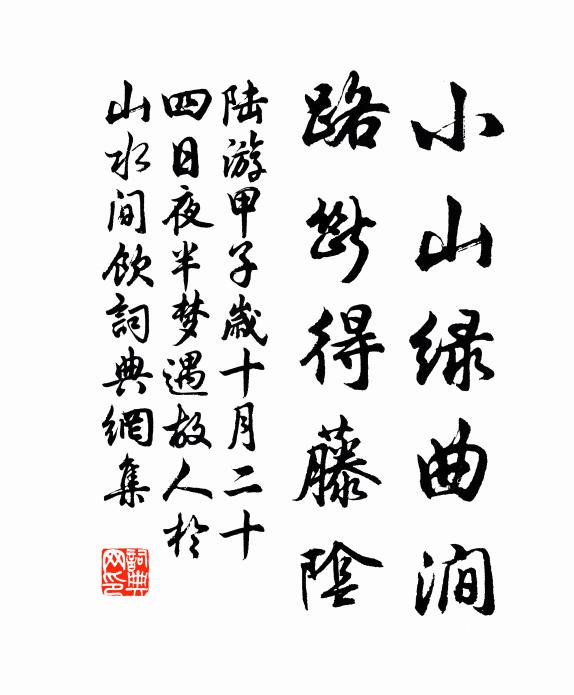 小山绿曲涧
路断得藤陰
陆游甲子歲十月二十
四日夜半梦遇故人於
山水间饮詞典網集
詞典网印